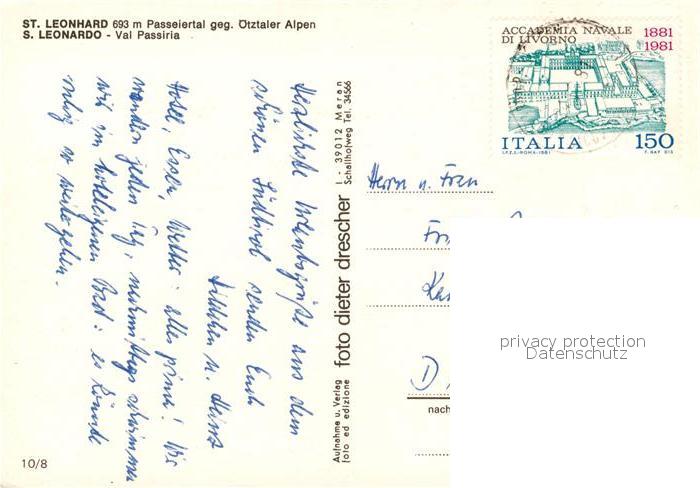 ST. LEONHARD 693 m Passeiertal geg. Ötztaler Alpen
S. LEONARDO - Val Passiria
Herzlichste Urlaubsgrüße aus dem
schönen Südtirol senden Euch
u. Heinz
Hotel, Essen, Wetter: alles prima! Wir
wandern jeden Tag, nachmittags schwimmen
wir im hoteleigenen Bad: es könnte
ruhig so weitergehen.
10/8
Aufnahme u. Verlag
foto ed edizione
foto dieter drescher
I - 39012 Meran
Schallhofweg Tel. 34566
ACCADEMIA NAVALE
DI LIVORNO
1881
1981
ITALIA 150
I.P.Z.S.-ROMA-1981
Herrn u. Frau
D
nach
privacy protection
Datenschutz